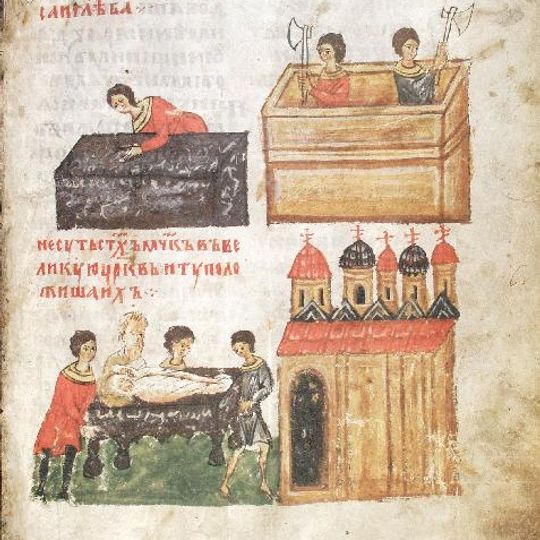 са и глѣба⁘
несуть ст҃хъ мч҃къ въ ве
ликую црк҃вь и ту поло
жиша ихъ⁘